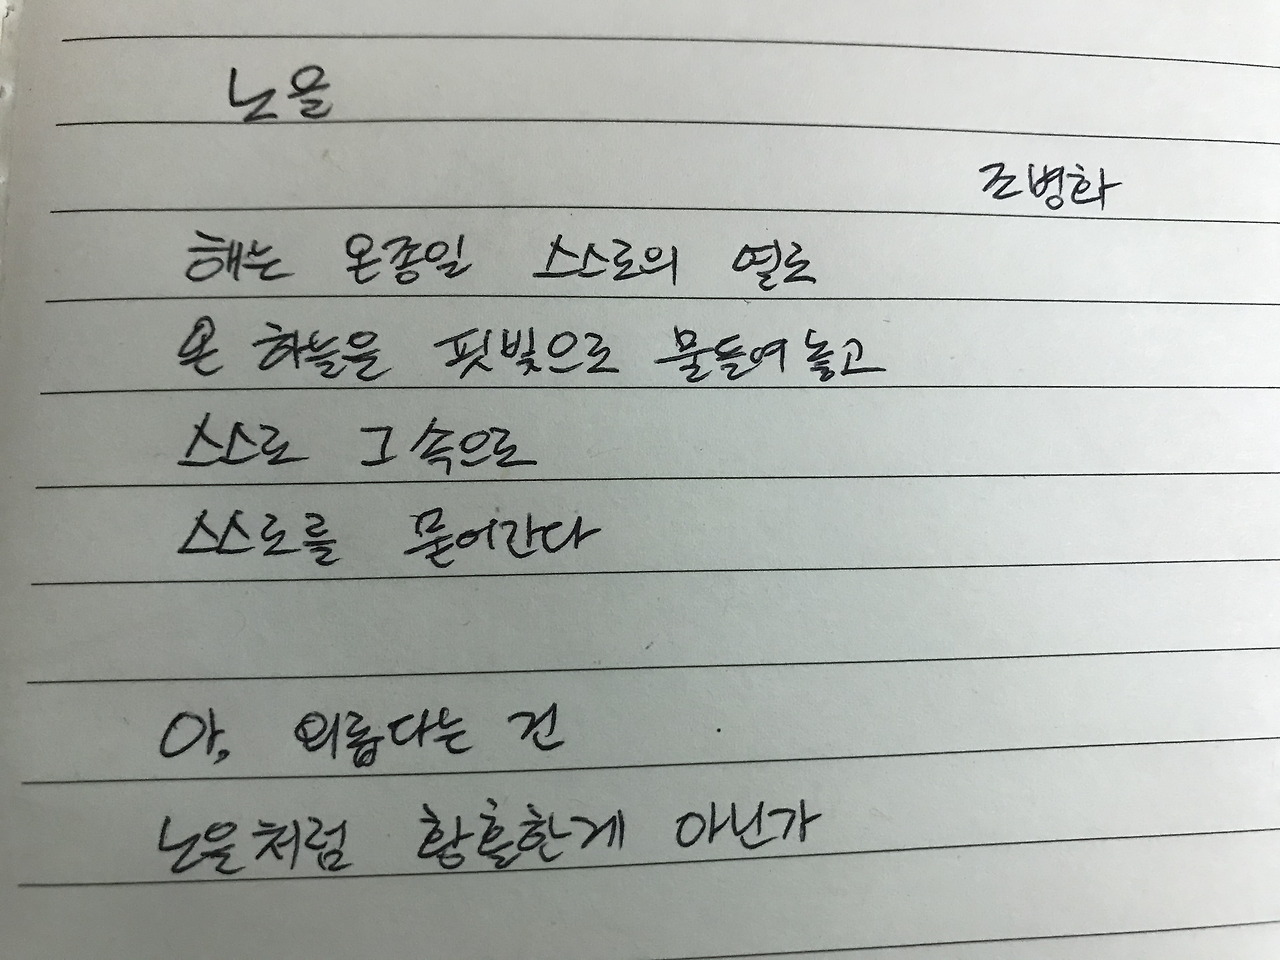 노을
조병화
해는 온종일 스스로의 열로
온 하늘을 핏빛으로 물들여 놓고
스스로 그 속으로
스스로를 묻어간다
아, 외롭다는 건
노을처럼 황홀한게 아닌가